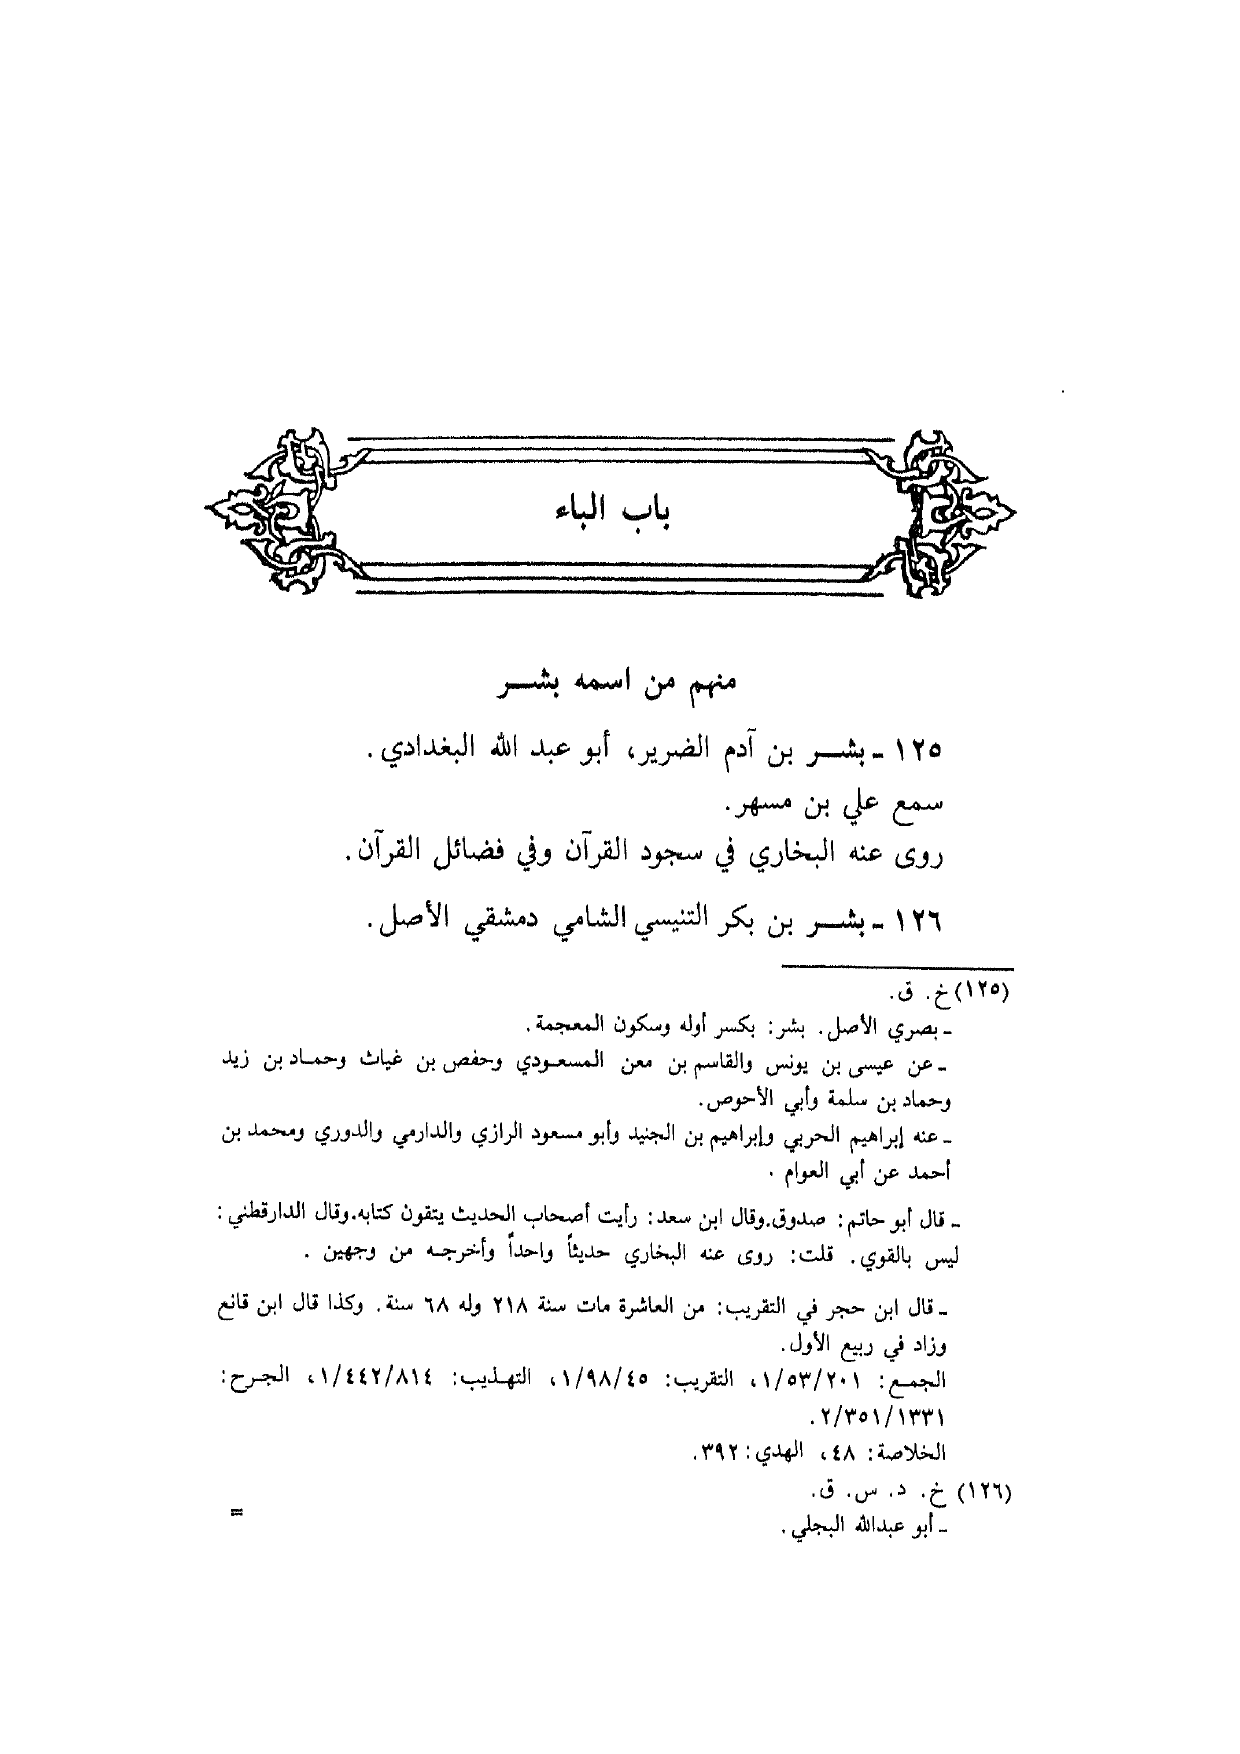 باب الباء
منهم من اسمه بشر
١٢٥ - بشر بن آدم الضرير، أبو عبد الله البغدادي.
سمع علي بن مسهر.
روى عنه البخاري في سجود القرآن وفي فضائل القرآن.
١٢٦ - بشر بن بكر التنيسي الشامي دمشقي الأصل.
(١٢٥) خ. ق.
- بصري الأصل. بشر: بكسر أوله وسكون المعجمة.
- عن عيسى بن يونس والقاسم بن معن المسعودي وحفص بن غياث وحماد بن زيد
وحماد بن سلمة وأبي الأحوص.
- عنه إبراهيم الحربي وإبراهيم بن الجنيد وأبو مسعود الرازي والدارمي والدوري ومحمد بن
أحمد عن أبي العوام .
- قال أبو حاتم: صدوق.وقال ابن سعد: رأيت أصحاب الحديث يتقون كتابه.وقال الدارقطني:
ليس بالقوي. قلت: روى عنه البخاري حديثاً واحداً وأخرجه من وجهين .
- قال ابن حجر في التقريب: من العاشرة مات سنة ٢١٨ وله ٦٨ سنة. وكذا قال ابن قانع
وزاد في ربيع الأول.
الجمع: ١/٥٣/٢٠١، التقريب: ١/٩٨/٤٥، التهذيب: ١/٤٤٢/٨١٤، الجرح:
٢/٣٥١/١٣٣١.
الخلاصة: ٤٨، الهدي: ٣٩٢.
(١٢٦) خ. د. س. ق.
- أبو عبدالله البجلي.
=